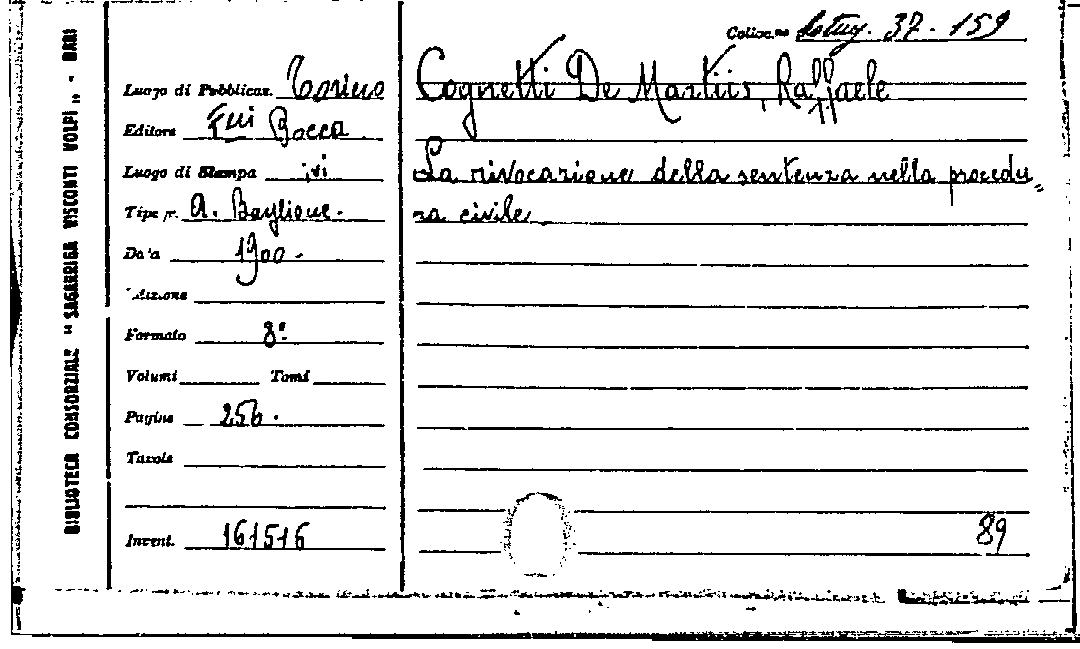 BIBLIOTECA CONSORZIALE "SAGARRIGA VISCONTI VOLPI" - BARI
Colloc.ne 37 - 159
Luogo di Pubblicaz. Torino
Editore F.lli Bocca
Luogo di Stampa ivi
Tipogr. A. Baglione.
Data 1900.
Edizione
Formato 8º
Volumi Tomi
Pagine 256.
Tavole
Invent. 161516
Cognetti De Martiis, Raffaele
La rivocazione della sentenza nella procedu
ra civile
89